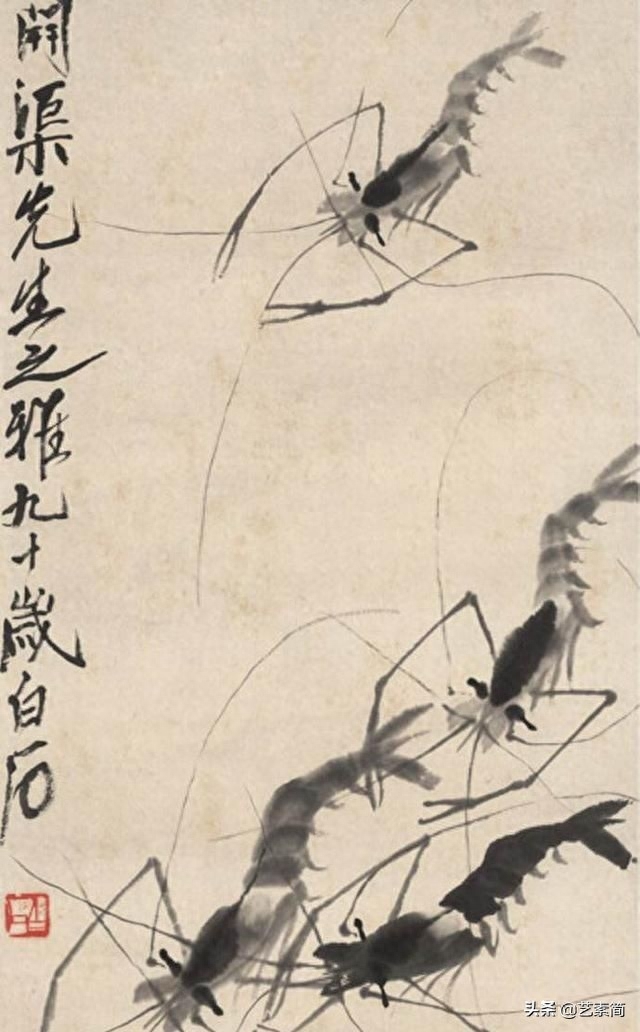 開渠先生之雅九十歲白石
头条 @艺素简